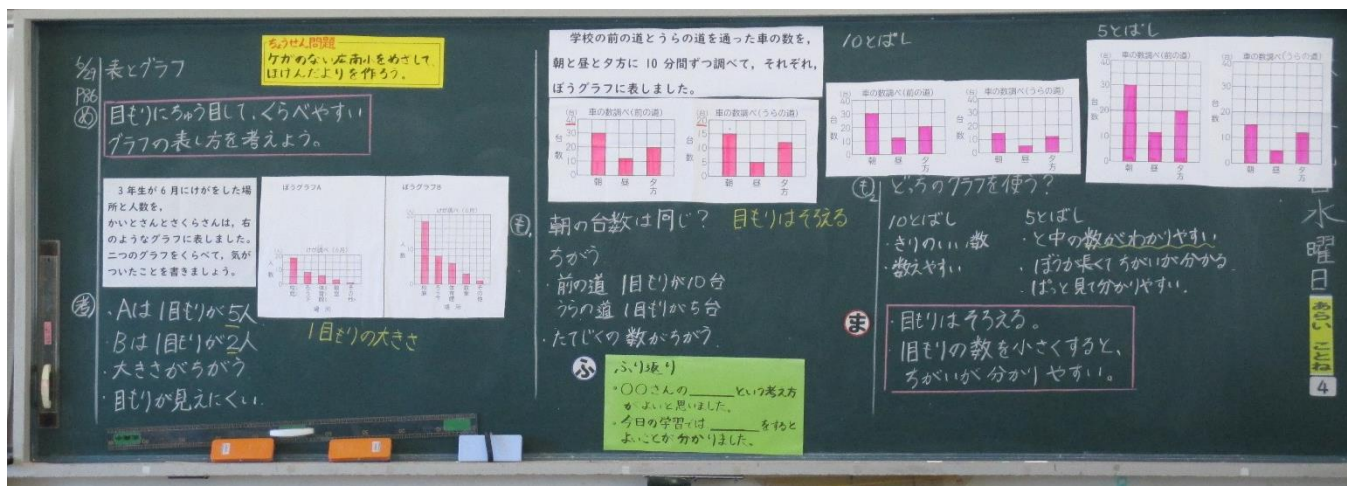 5/29
P86
表とグラフ
ちょうせん問題
ケガのない広南小をめざして、
ほけんだよりを作ろう。
め
目もりにちゅう目して、くらべやすい
グラフの表し方を考えよう。
3年生が6月にけがをした場
所と人数を,
かいとさんとさくらさんは,右
のようなグラフに表しました。
二つのグラフをくらべて,気が
ついたことを書きましょう。
ぼうグラフA
ぼうグラフB
考
・Aは1目もりが5人
・Bは1目もりが2人
・大きさがちがう
・目もりが見えにくい。
1目もりの大きさ
学校の前の道とうらの道を通った車の数を,
朝と昼と夕方に10分間ずつ調べて,それぞれ,
ぼうグラフに表しました。
(台) 車の数調べ(前の道)
40
30
20
10
0
台数
朝 昼 夕方
(台) 車の数調べ(うらの道)
20
15
10
5
0
台数
朝 昼 夕方
も1
朝の台数は同じ? 目もりはそろえる
ちがう
・前の道 1目もりが10台
うらの道 1目もりが5台
・たてじくの数がちがう
ふ
ふり返り
・○○さんの______という考え方
がよいと思いました。
・今日の学習では______をすると
よいことが分かりました。
10とばし
(台) 車の数調べ(前の道)
40
30
20
10
0
台数
朝 昼 夕方
(台) 車の数調べ(うらの道)
40
30
20
10
0
台数
朝 昼 夕方
5とばし
車の数調べ(前の道)
40
30
20
10
0
台数
朝 昼 夕方
車の数調べ(うらの道)
40
30
20
10
0
台数
朝 昼 夕方
も2
どっちのグラフを使う?
10とばし
・きりのいい数
・数えやすい
5とばし
・と中の数がわかりやすい
・ぼうが長くてちがいが分かる
・ぱっと見て分かりやすい。
ま
・目もりはそろえる。
・1目もりの数を小さくすると、
ちがいが分かりやすい。
水曜日
あらい ことね
4